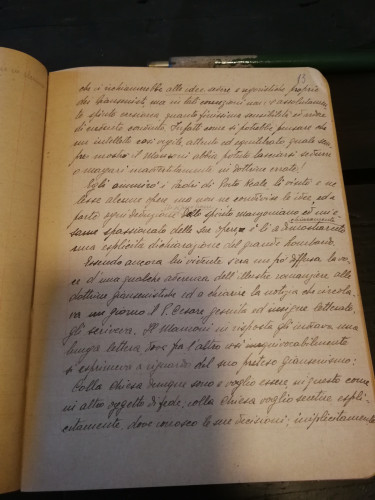 15
che si richiamerebbe alle idee e agonistiche proprie
dei Giansenisti, ma in tali non v'è assolutamente
lo spirito ma quanto finissima sensibilità e
di Infatti come si potrebbe pensare che
un intelletto così vigile, attento ed equilibrato quale sem-
pre mostrò il Manzoni abbia potuto lasciarsi
o magari inavvertitamente in dottrine errate!
Egli ammirò i di Porto Reale, li e ne
lesse alcune opere, ma non ne condivise le idee, ed a
parte ogni deduzione dallo spirito manzoniano ed un e-
same spassionato delle sue opere è lì a dimostrarcelo
chiaramente
una esplicita dichiarazione del grande lombardo.
Essendo ancora lui vivente s'era un po' diffusa la vo-
ce d'una qualche aderenza dell'illustre romanziere alle
dottrine giansenistiche ed a chiarire la notizia che circola-
va un giorno il P. Cesare gesuita ed insigne letterato,
gli scriveva. Il Manzoni in risposta gli inviava una
lunga lettera dove fra l'altro così inequivocabilmente
si esprimeva a riguardo del suo preteso giansenismo:
"Colla Chiesa dunque sono e voglio essere, in questo come
in altro oggetto di fede; colla Chiesa voglio sentire espli-
citamente, dove conosco le sue decisioni; implicitamente